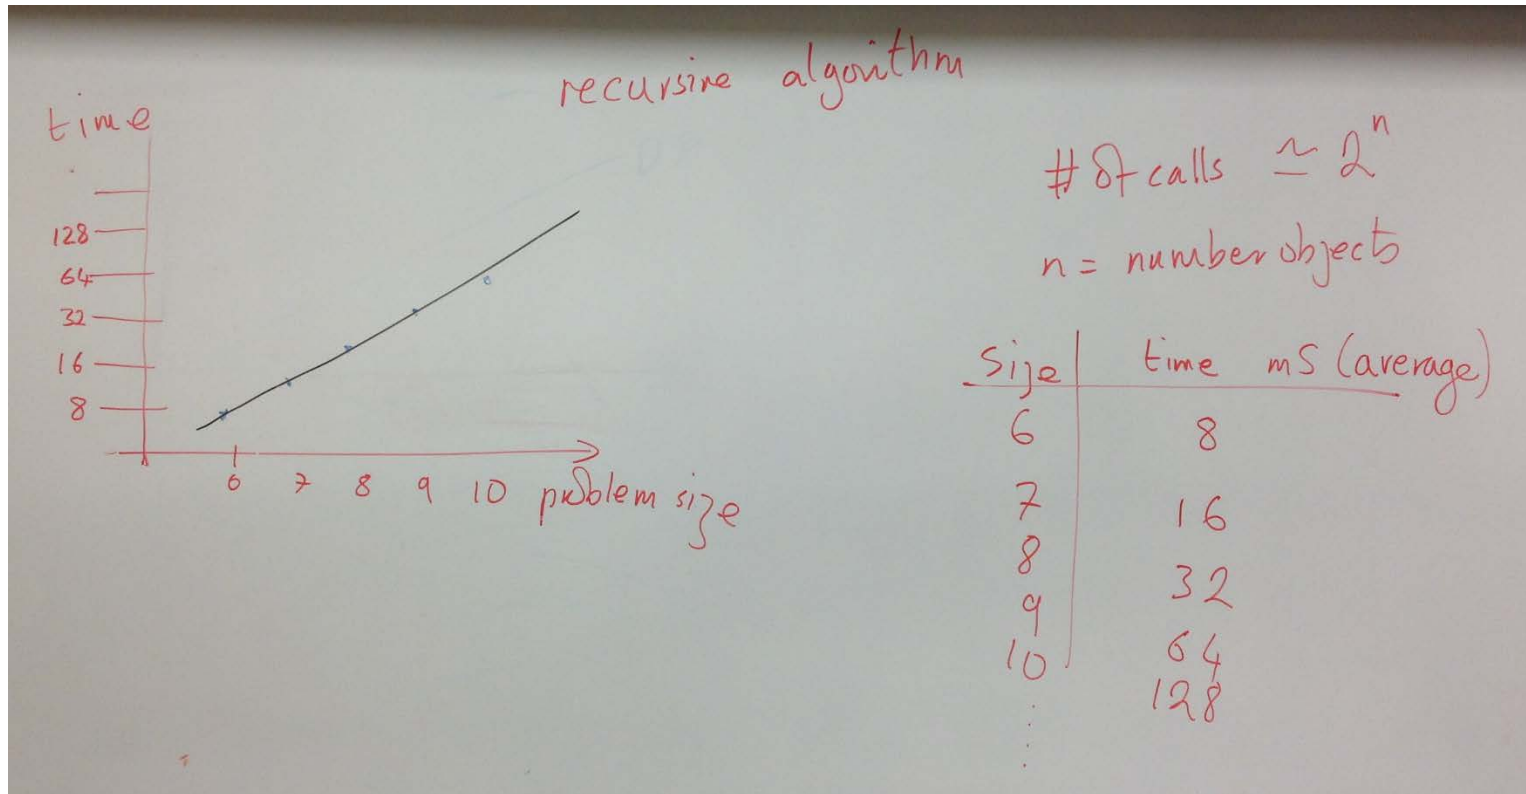 recursive algorithm
time
128
64
32
16
8
6 7 8 9 10 problem size
# of calls ≃ 2ⁿ
n = number objects
Size time mS (average)
6 8
7 16
8 32
9 64
10 128